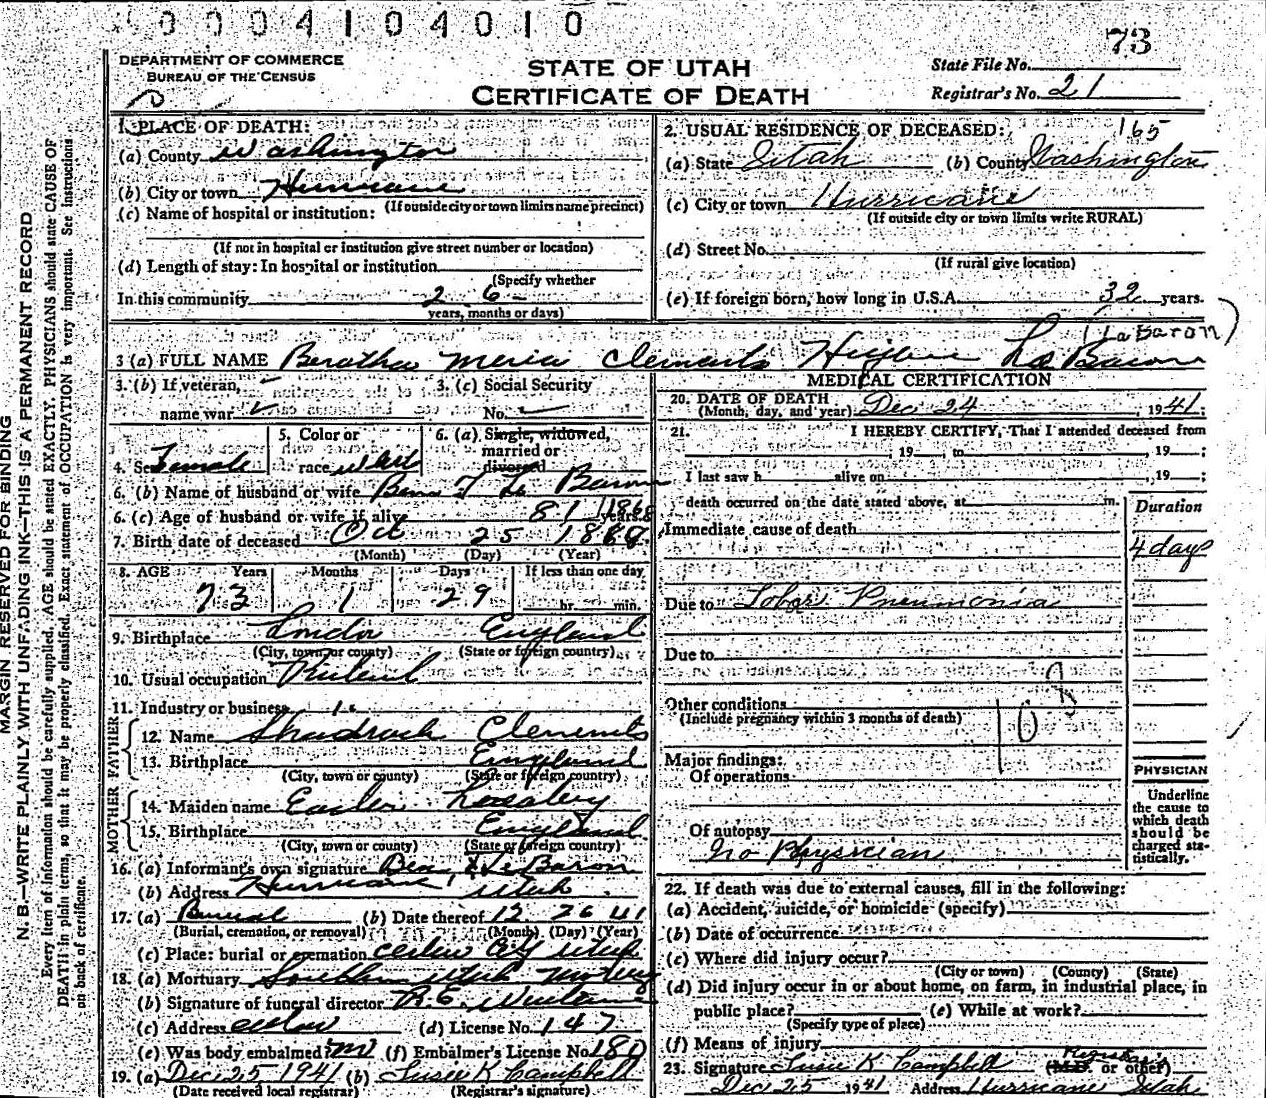 0004104010
73
DEPARTMENT OF COMMERCE
BUREAU OF THE CENSUS
STATE OF UTAH
CERTIFICATE OF DEATH
State File No.
Registrar's No. 21
MARGIN RESERVED FOR BINDING
N. B.—WRITE PLAINLY, WITH UNFADING INK—THIS IS A PERMANENT RECORD
Every item of information should be carefully supplied. AGE should be stated EXACTLY. PHYSICIANS should state CAUSE OF
DEATH in plain terms, so that it may be properly classified. Exact statement of OCCUPATION is very important. See Instructions
on back of certificate.
1. PLACE OF DEATH:
(a) County Washington
(b) City or town Hurricane
(If outside city or town limits name precinct)
(c) Name of hospital or institution:
(If not in hospital or institution give street number or location)
(d) Length of stay: In hospital or institution
(Specify whether
In this community 26
years, months or days)
165
2. USUAL RESIDENCE OF DECEASED:
(a) State Utah (b) County Washington
(c) City or town Hurricane
(If outside city or town limits write RURAL)
(d) Street No.
(If rural give location)
(e) If foreign born, how long in U.S.A. 32 years.
(LaBaron)
3 (a) FULL NAME Beratha Meria Clements Higbee Le Baron
3. (b) If veteran,
name war
3. (c) Social Security
No.
4. Sex Female
5. Color or
race white
6. (a) Single, widowed,
married or
divorced
6. (b) Name of husband or wife Ben T Le Baron
6. (c) Age of husband or wife if alive 81 years
1868
7. Birth date of deceased Oct 25
(Month) (Day) (Year)
8. AGE Years Months Days If less than one day
73 1 29 hr. min.
9. Birthplace London England
(City, town or county) (State or foreign country)
10. Usual occupation
11. Industry or business
FATHER
12. Name Shadrach Clements
13. Birthplace England
(City, town or county) (State or foreign country)
MOTHER
14. Maiden name
15. Birthplace England
(City, town or county) (State or foreign country)
16. (a) Informant's own signature Ben Le Baron
(b) Address Hurricane Utah
17. (a) Burial (b) Date thereof 12 26 41
(Burial, cremation, or removal) (Month) (Day) (Year)
(c) Place: burial or cremation Cedar City Utah
18. (a) Mortuary Southern Utah Mortuary
(b) Signature of funeral director R.E.
(c) Address Cedar (d) License No. 147
(e) Was body embalmed (f) Embalmer's License No. 180
19. (a) Dec 25 1941 (b) Susie K Campbell
(Date received local registrar) (Registrar's signature)
MEDICAL CERTIFICATION
20. DATE OF DEATH
(Month, day, and year) Dec 24, 1941;
21. I HEREBY CERTIFY, That I attended deceased from
, 19 , to , 19 ;
I last saw h alive on , 19 ;
death occurred on the date stated above, at m.
Duration
Immediate cause of death
4 days
Due to Lobar Pneumonia
Due to
Other conditions
(Include pregnancy within 3 months of death)
108
Major findings:
Of operations
Of autopsy
No Physician
PHYSICIAN
Underline
the cause to
which death
should be
charged sta-
tistically.
22. If death was due to external causes, fill in the following:
(a) Accident, suicide, or homicide (specify)
(b) Date of occurrence
(c) Where did injury occur?
(City or town) (County) (State)
(d) Did injury occur in or about home, on farm, in industrial place, in
public place? (e) While at work?
(Specify type of place)
(f) Means of injury
Registrar
23. Signature Susie K Campbell (M.D. or other)
Dec 25 1941 Address Hurricane Utah